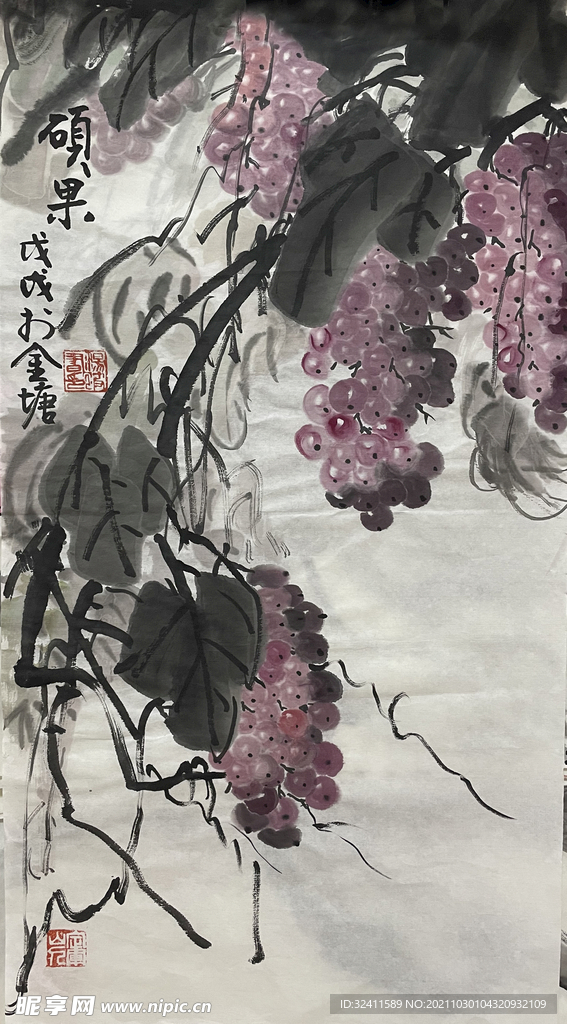 碩果
戊戌於金塘
昵享网 www.nipic.cn
ID:32411589 NO:20211030104320932109